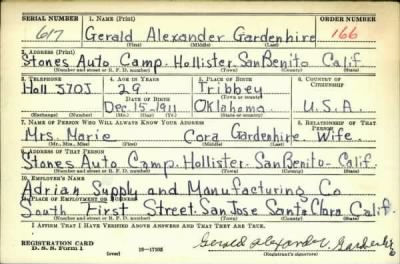 SERIAL NUMBER 1. NAME (Print) ORDER NUMBER
617 Gerald Alexander Gardenhire 166
(First) (Middle) (Last)
2. ADDRESS (Print)
Stones Auto Camp. Hollister. San Benito Calif.
(Number and street or R. F. D. number) (Town) (County) (State)
3. TELEPHONE 4. AGE IN YEARS 5. PLACE OF BIRTH 6. COUNTRY OF CITIZENSHIP
Holl 370J 29 Tribbey
DATE OF BIRTH (Town or county)
Dec. 15-1911 Oklahoma U.S.A.
(Exchange) (Number) (Mo.) (Day) (Yr.) (State or country)
7. NAME OF PERSON WHO WILL ALWAYS KNOW YOUR ADDRESS 8. RELATIONSHIP OF THAT PERSON
Mrs. Marie Cora Gardenhire. Wife.
(Mr., Mrs., Miss) (First) (Middle) (Last)
9. ADDRESS OF THAT PERSON
Stones Auto Camp. Hollister. San Benito - Calif.
(Number and street or R. F. D. number) (Town) (County) (State)
10. EMPLOYER'S NAME
Adrian Supply and Manufacturing Co
11. PLACE OF EMPLOYMENT OR BUSINESS
South First Street. San Jose Santa Clara Calif.
(Number and street or R. F. D. number) (Town) (County) (State)
I AFFIRM THAT I HAVE VERIFIED ABOVE ANSWERS AND THAT THEY ARE TRUE.
REGISTRATION CARD
D. S. S. Form 1 (over) 16-17105 Gerald Alexander Gardenhire
(Registrant's signature)